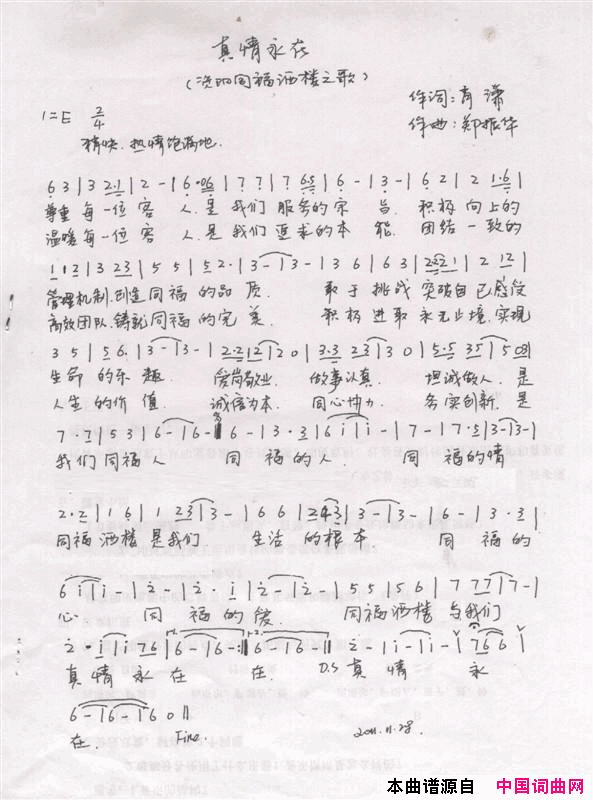 真情永在
(资阳同福酒楼之歌)
1=E 2/4
作词:肖潇
作曲:郑振华
稍快.热情饱满地.
6 3 | 3 2.1 | 2 - | 6.06 | 7 7 | 7 6.5 | 6 - | 3 - | 6 2 | 2 1.6 |
尊重每一位客 人.是我们服务的宗 旨. 积极向上的
温暖每一位客 人.是我们追求的本 能. 团结一致的
1 1 2 | 3 23 | 5 5 | 5 2. | 3 - | 3 - | 3 6 | 6 3 | 222 1 | 2 12 |
管理机制.创造同福的品质. 敢于挑战突破自已感受
高效团队.铸就同福的完美. 积极进取永无止境.实现
3 5 | 5 6. | 3 - | 3 - | 2.2 12 | 2 0 | 3.3 23 | 3 0 | 5.5 35 | 5 03 |
生命的乐趣. 爱岗敬业. 做事认真. 坦诚做人.是
人生的价值. 诚信为本. 同心协力. 务实创新.是
7 . 7 | 5 3 | 6 - | 6 - | 6 - | 3 . 3 | 6 i | i - | 7 - | 7 . 5 | 3 - | 3 - |
我们同福人 同福的人. 同福的情
2 . 2 | 1 6 | 1 23 | 3 - | 6 6 | 243 | 3 - | 3 - | 6 - | 3 . 3 |
同福酒楼是我们 生活的根本. 同福的
6 i | i - | 2 - | 2 . i | 2 - | 2 - | 5 5 | 5 6 | 7 77 | 7 - |
心 同福的爱. 同福酒楼与我们
2 . i | i 76 | 6 - | 6 - | 6 - | 6 - | 2 - | i - | i - | 76 6 |
真情永在 在. D.S 真情 永
6 - | 6 - | 6 0 ||
在. Fine. 2011.11.28
本曲谱源自 中国词曲网